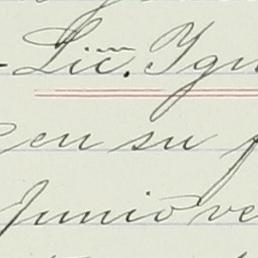 Lic. Ign
en su
Junio ve